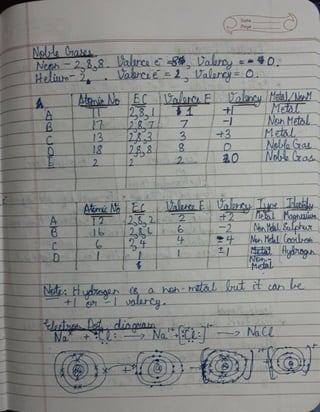 Date
Page
Noble Gases
Neon - 2,8,8. Valence e⁻ 8, Valency = 0.
Helium - 2. Valence e⁻ = 2, Valency = 0.
Atomic No EC Valence E Valency Metal/NonM
A 11 2,8,1 1 Metal
B 17 2,8,7 7 -1 Non Metal
C 13 2,8,3 3 +3 Metal
D 18 2,8,8 8 0 Noble Gas
E 2 2 2 0 Noble Gas
Atomic No EC Valence E Valency Type Identify
A 12 2,8,2 2 +2 Metal Magnesium
B 16 2,8,6 6 -2 Non Metal Sulphur
C 6 2,4 4 4 Non Metal Carbon
D 1 1 1 ±1 Hydrogen
Non-
Metal
Note: Hydrogen is a non-metal but it can be
+1 or -1 valency.
Electron Dot diagram
Na + Cl: → Na¹⁺ [:Cl:]¹⁻ → NaCl